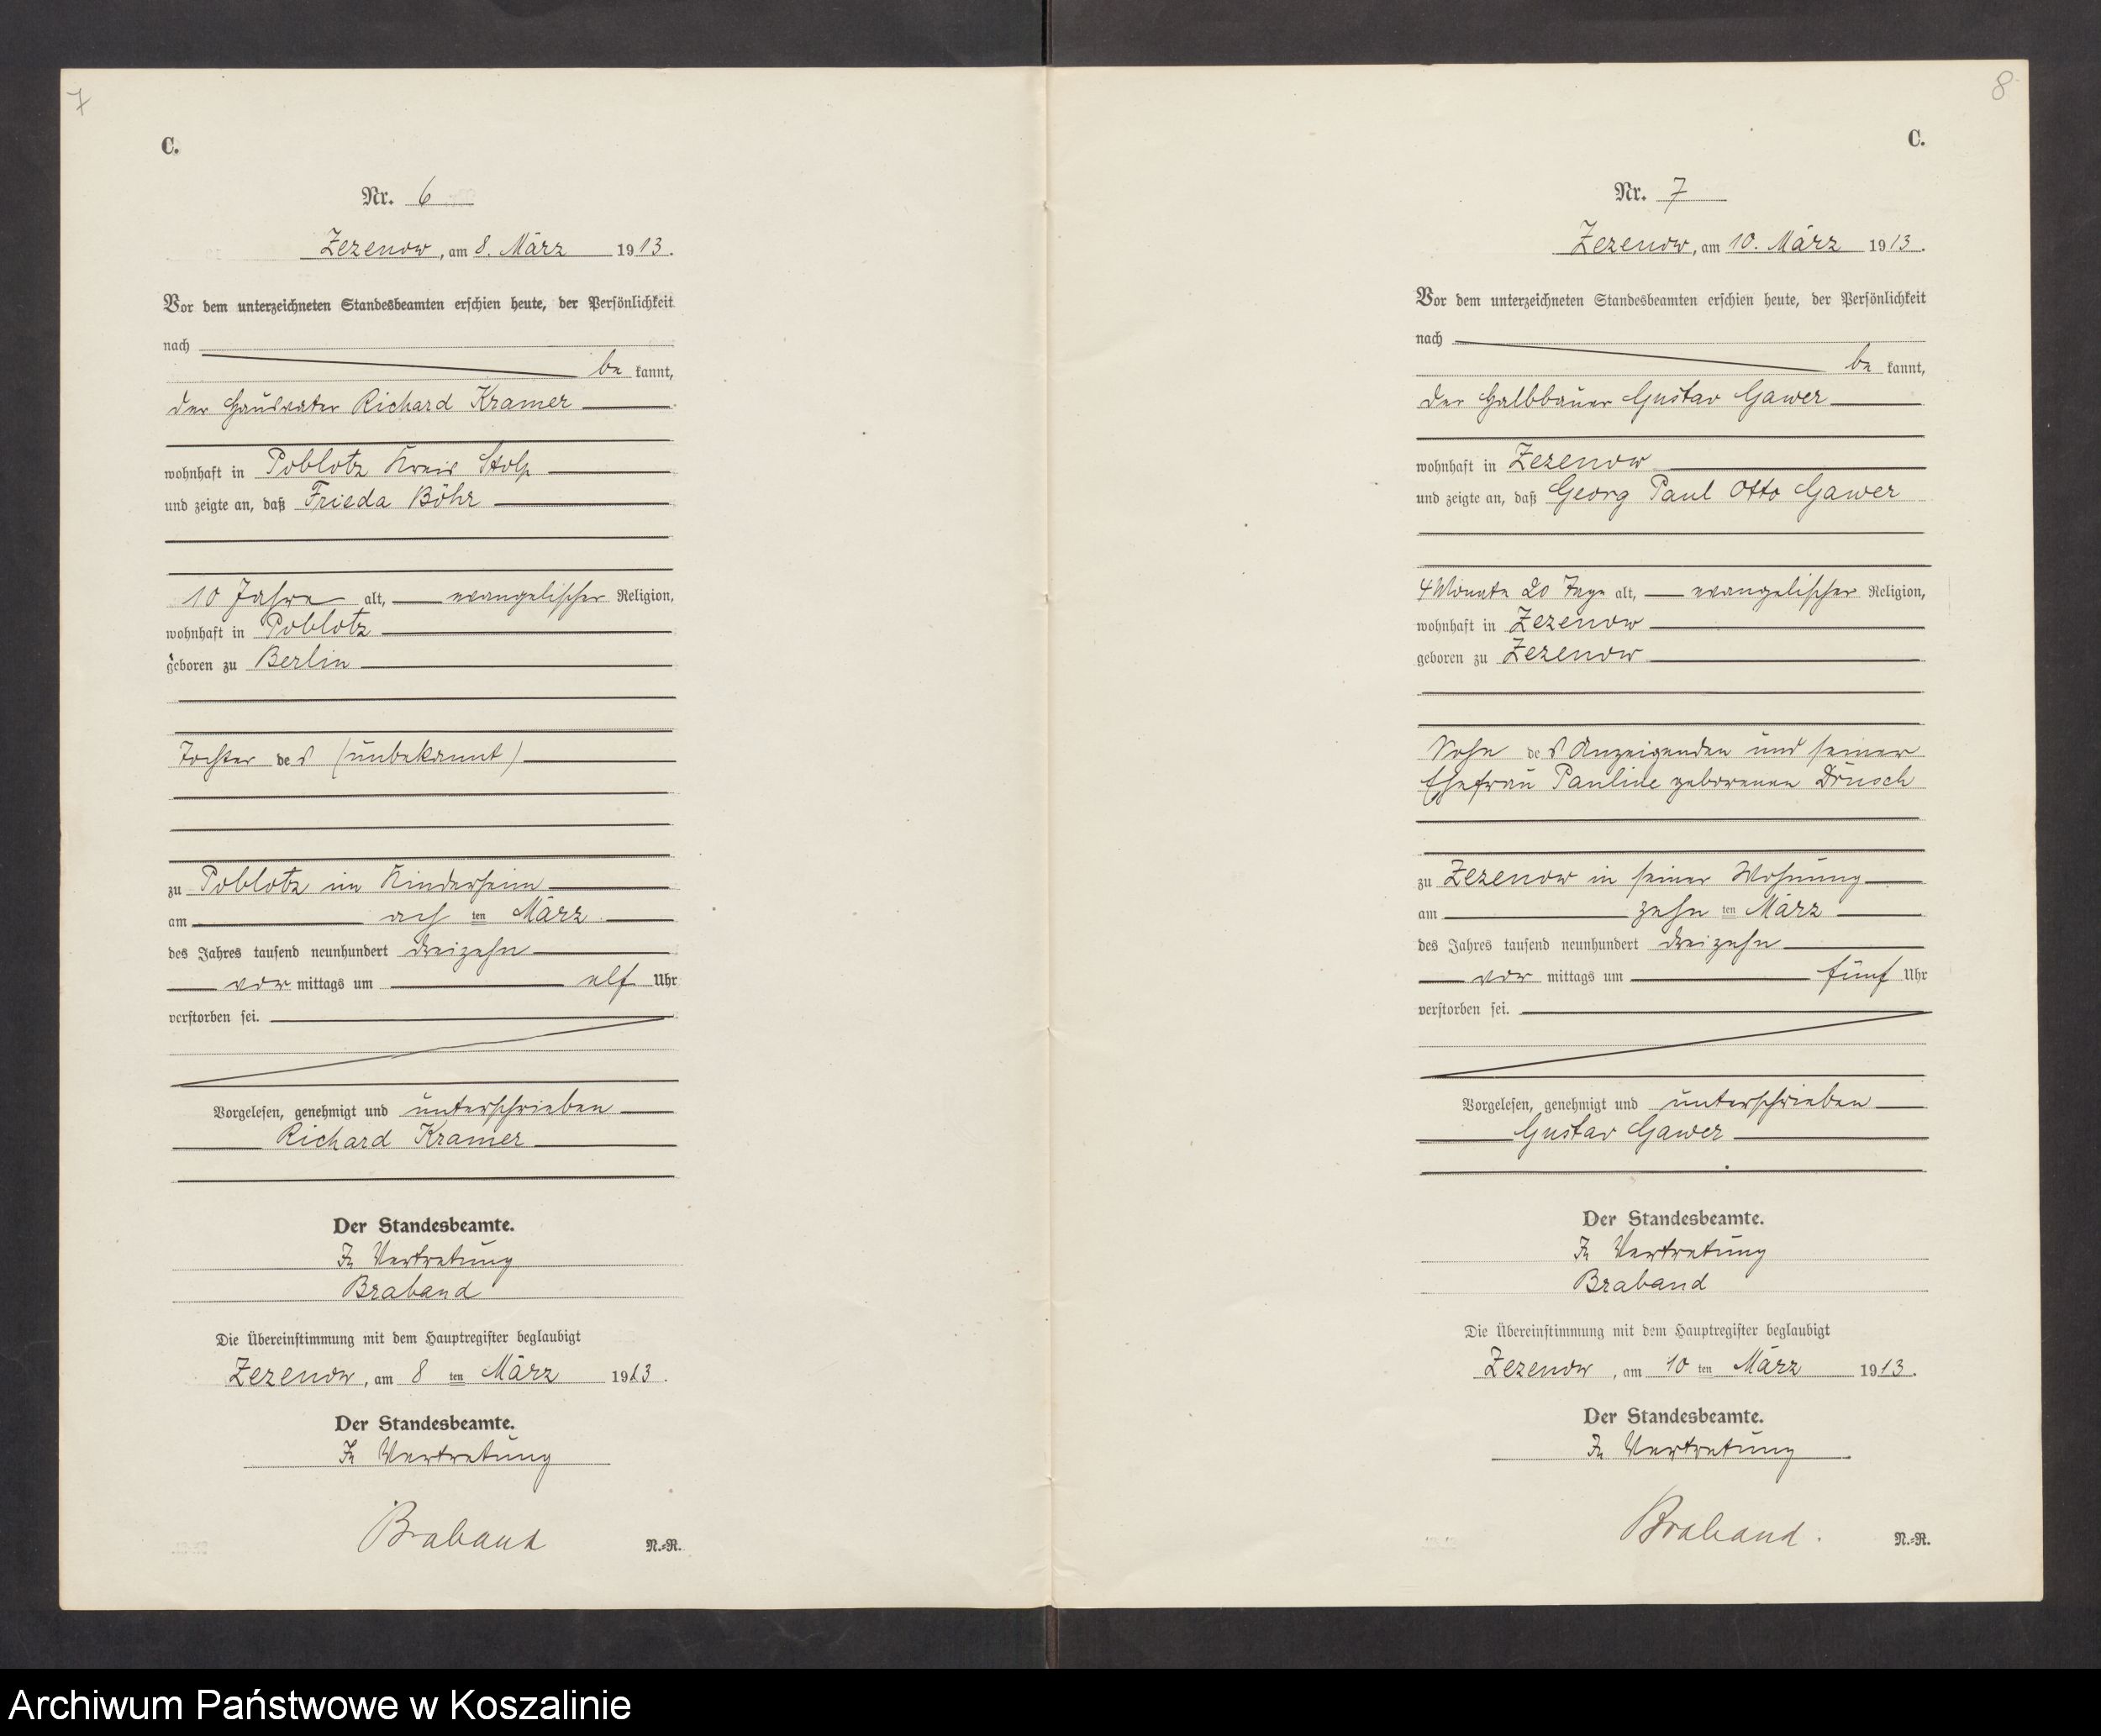 7
C.
Nr. 6
Zezenow, am 8. März 1913.
Vor dem unterzeichneten Standesbeamten erschien heute, der Persönlichkeit
nach
be kannt,
der Hausvater Richard Kramer
wohnhaft in Poblotz Kreis Stolp
und zeigte an, daß Frieda Böhr
10 Jahre alt, evangelischer Religion,
wohnhaft in Poblotz
geboren zu Berlin
Tochter des (unbekannt)
zu Poblotz im Kinderheim
am ach ten März
des Jahres tausend neunhundert dreizehn
vor mittags um elf Uhr
verstorben sei.
Vorgelesen, genehmigt und unterschrieben
Richard Kramer
Der Standesbeamte.
In Vertretung
Braband
Die Übereinstimmung mit dem Hauptregister beglaubigt
Zezenow, am 8 ten März 1913.
Der Standesbeamte.
In Vertretung
Braband
N.-R.
8
C.
Nr. 7
Zezenow, am 10. März 1913.
Vor dem unterzeichneten Standesbeamten erschien heute, der Persönlichkeit
nach
be kannt,
der Halbbauer Gustav Gawer
wohnhaft in Zezenow
und zeigte an, daß Georg Paul Otto Gawer
4 Monate 20 Tage alt, evangelischer Religion,
wohnhaft in Zezenow
geboren zu Zezenow
Sohn des Anzeigenden und seiner
Ehefrau Pauline geborenen
zu Zezenow in seiner Wohnung
am zehn ten März
des Jahres tausend neunhundert dreizehn
vor mittags um fünf Uhr
verstorben sei.
Vorgelesen, genehmigt und unterschrieben
Gustav Gawer
Der Standesbeamte.
In Vertretung
Braband
Die Übereinstimmung mit dem Hauptregister beglaubigt
Zezenow, am 10 ten März 1913.
Der Standesbeamte.
In Vertretung
Braband.
N.-R.
Archiwum Państwowe w Koszalinie